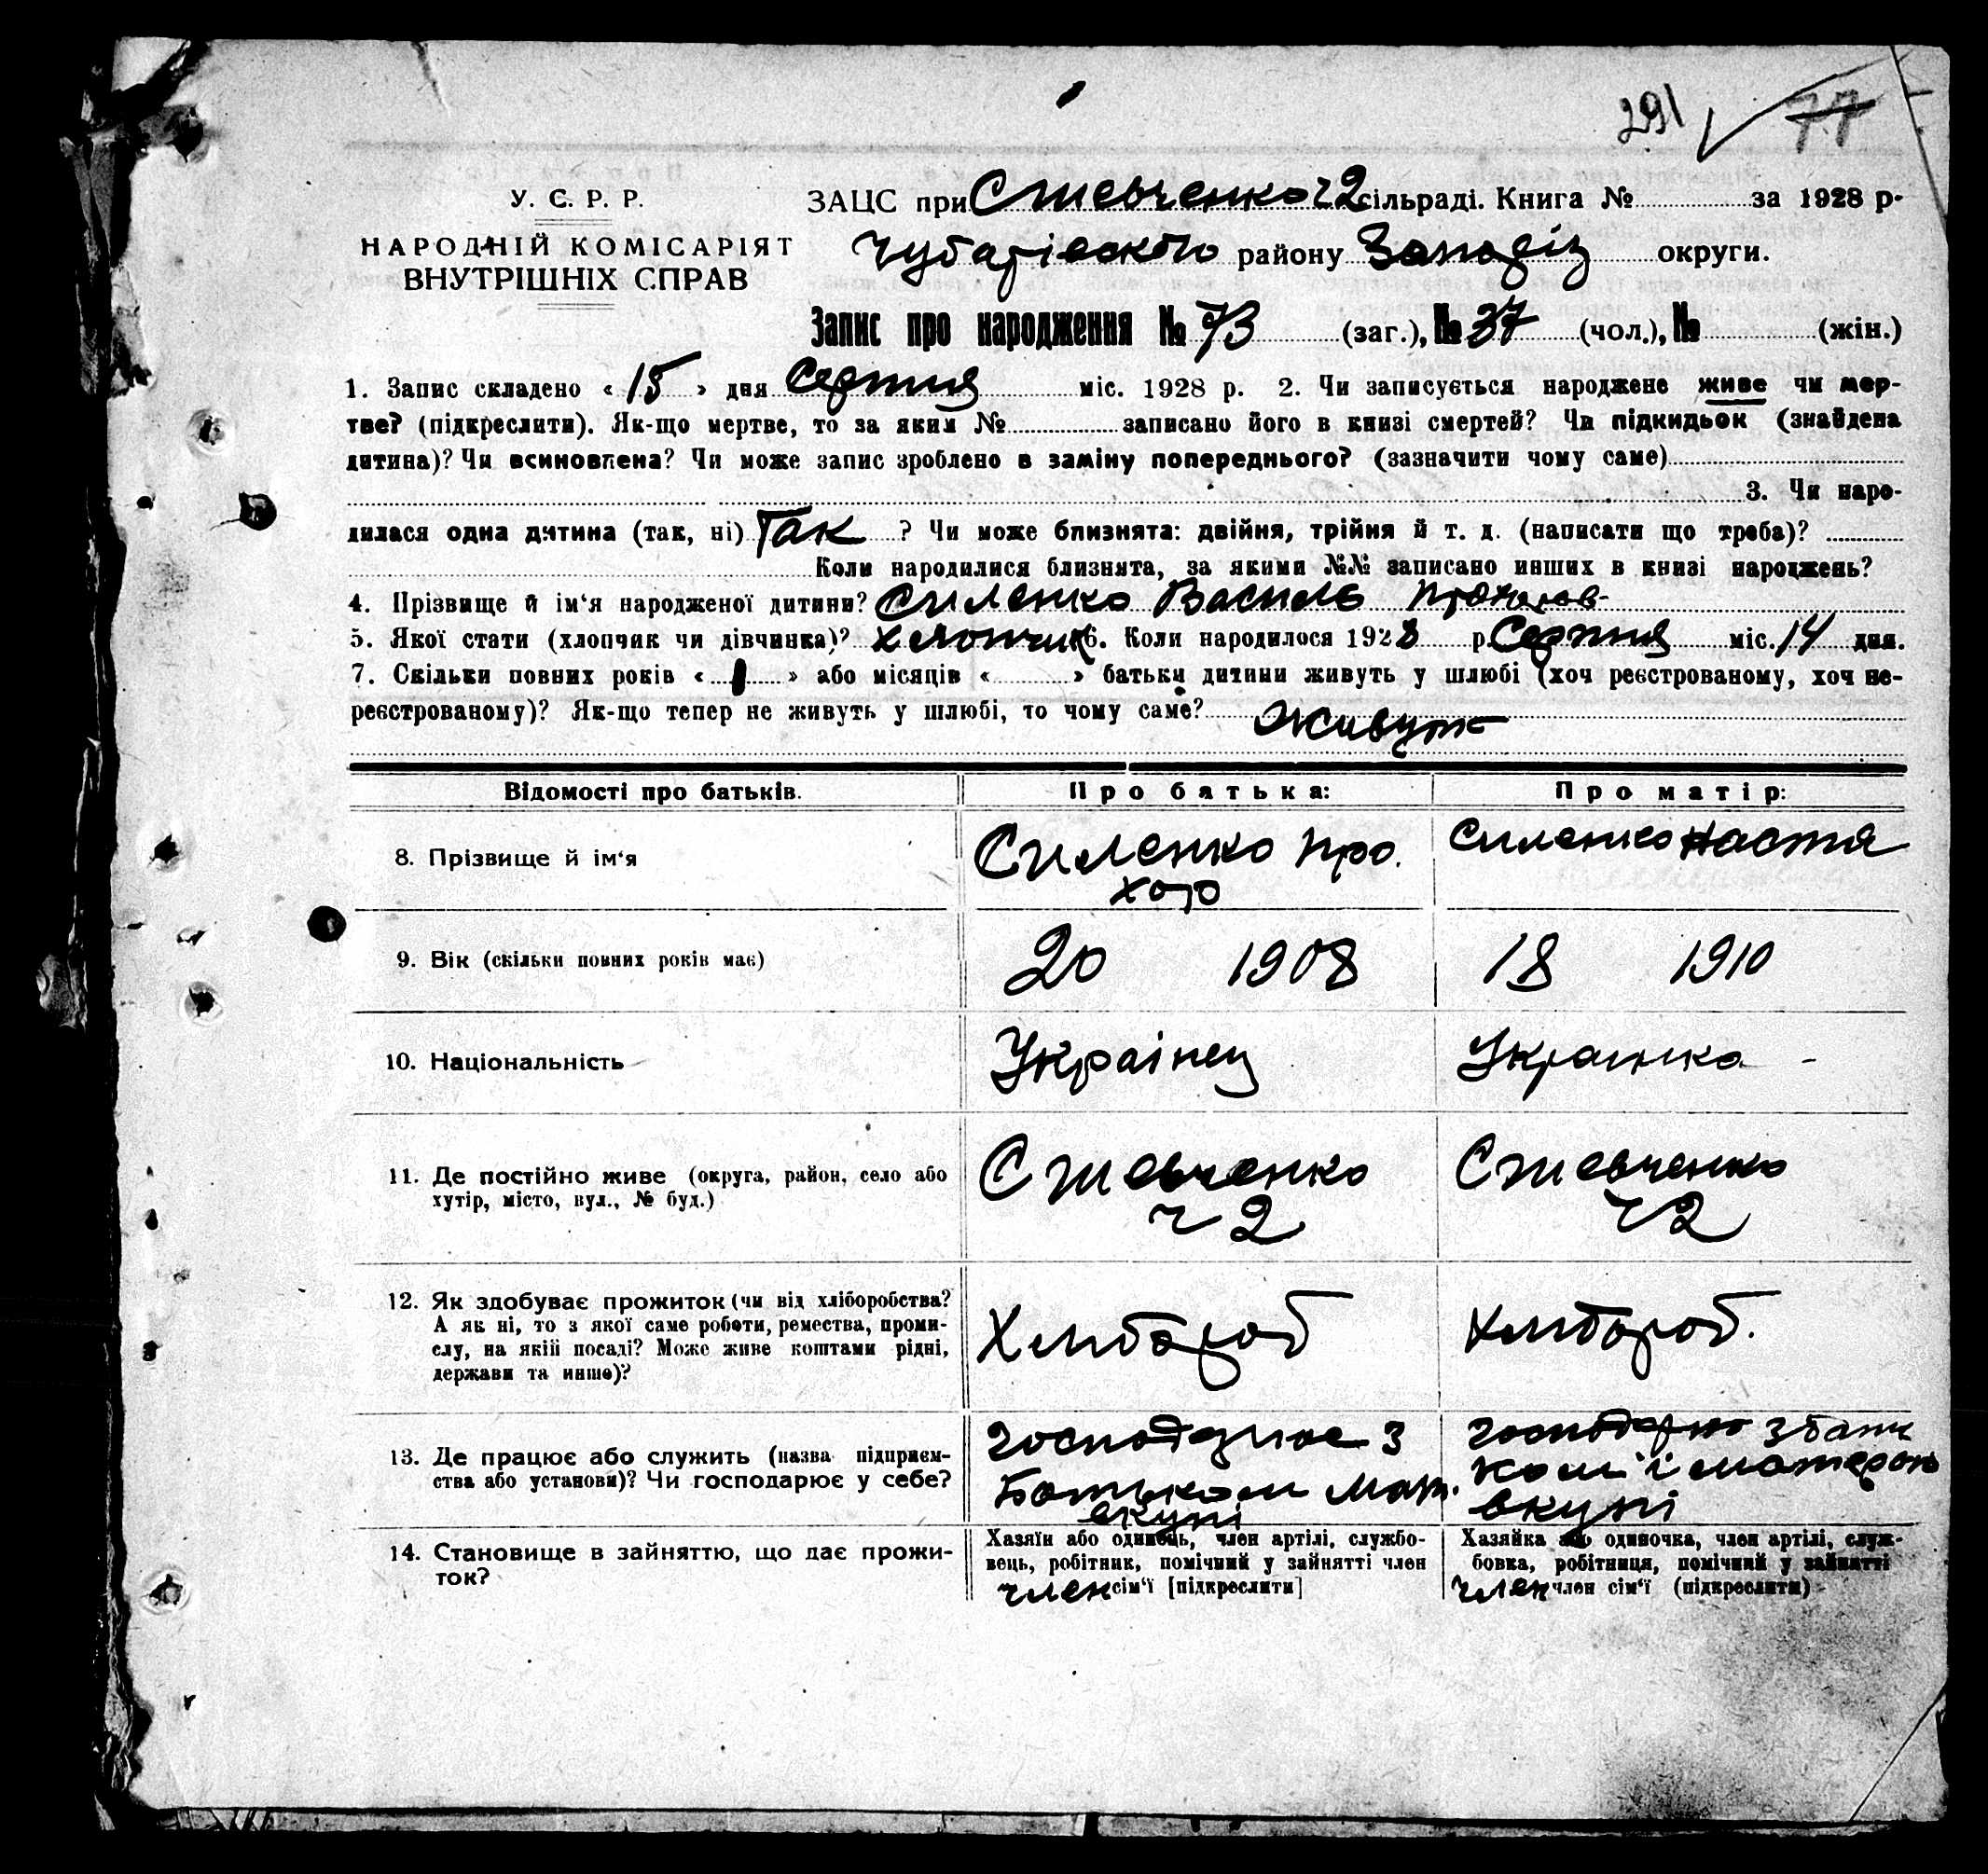 291 77
У. С. Р. Р.
НАРОДНІЙ КОМІСАРІЯТ
ВНУТРІШНІХ СПРАВ
ЗАЦС при С Шевченко ч2 сільраді. Книга № за 1928 р.
Чубарівского району Запоріз округи.
Запис про народження № 73 (заг.), № 37 (чол.), № (жін.)
1. Запис складено « 15 » дня Серпня міс. 1928 р. 2. Чи записується народжене живе чи мер-
тве? (підкреслити). Як-що мертве, то за яким № записано його в книзі смертей? Чи підкидьок (знайдена
дитина)? Чи всиновлена? Чи може запис зроблено в заміну попереднього? (зазначити чому саме)
3. Чи наро-
дилася одна дитина (так, ні) Так ? Чи може близнята: двійня, трійня й т. д. (написати що треба)?
Коли народилися близнята, за якими №№ записано инших в книзі народжень?
4. Прізвище й ім'я народженої дитини? Силенко Василь Прохоров
5. Якої стати (хлопчик чи дівчинка)? Хлопчик 6. Коли народилося 1928 р. Серпня міс. 14 дня.
7. Скільки повних років « 1 » або місяців « » батьки дитини живуть у шлюбі (хоч реєстрованому, хоч не-
реєстрованому)? Як-що тепер не живуть у шлюбі, то чому саме? Живуть
Відомості про батьків. Про батька: Про матір:
8. Прізвище й ім'я Силенко Про. Силенко Настя
хор
9. Вік (скільки повних років має) 20 1908 18 1910
10. Національність Українец Украинка -
11. Де постійно живе (округа, район, село або С Шевченко С Шевченко
хутір, місто, вул., № буд.) ч 2 ч 2
12. Як здобуває прожиток (чи від хліборобства?
А як ні, то з якої саме роботи, ремества, проми- Хлибороб Хлибороб.
слу, на якій посаді? Може живе коштами рідні,
держави та инше)?
13. Де працює або служить (назва підприєм-
ства або установи)? Чи господарює у себе?
господарює з
Батьком Мат.
вкупі
господарює з бать
ком і матерою
вкупі
14. Становище в зайняттю, що дає прожи-
ток?
Хазяїн або одинець, член артілі, службо-
вець, робітник, помічний у зайнятті член
член сім'ї [підкреслити]
Хазяйка або одиночка, член артілі, служ-
бовка, робітниця, помічний у зайнятті
член член сім'ї (підкреслити)